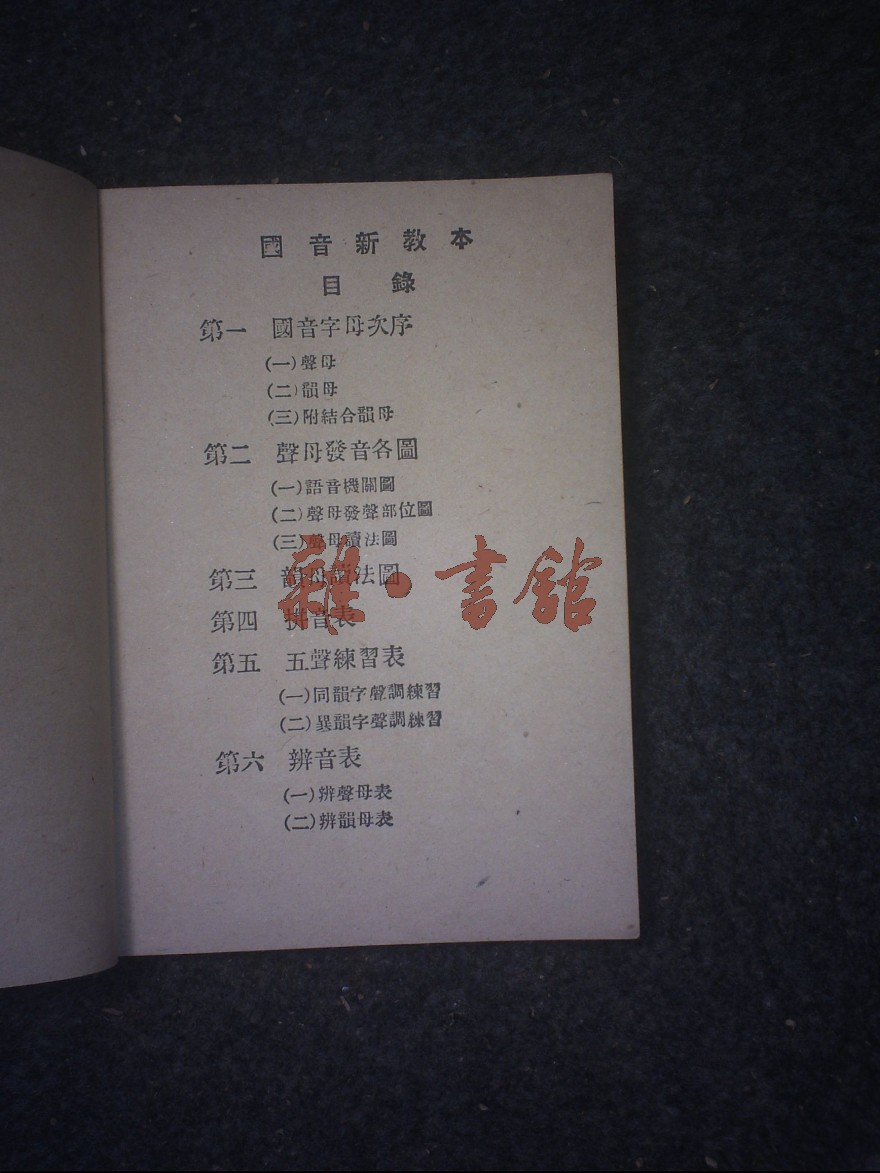 國音新教本
目錄
第一 國音字母次序
(一)聲母
(二)韻母
(三)附結合韻母
第二 聲母發音各圖
(一)語音機關圖
(二)聲母發聲部位圖
(三)聲母讀法圖
第三 韻母讀法圖
第四 拼音表
第五 五聲練習表
(一)同韻字聲調練習
(二)異韻字聲調練習
第六 辨音表
(一)辨聲母表
(二)辨韻母表
雜·書館